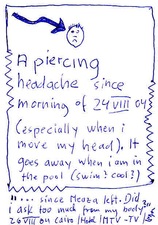 A piercing
headache since
morning of 24 VIII 04
(especially when i
move my head). It
goes away when i am in
the pool (swim? cool?)
"... since Meaza left. Did
i ask too much from my body?"
28 VIII on Cairo / Hotel / MTV - TV /